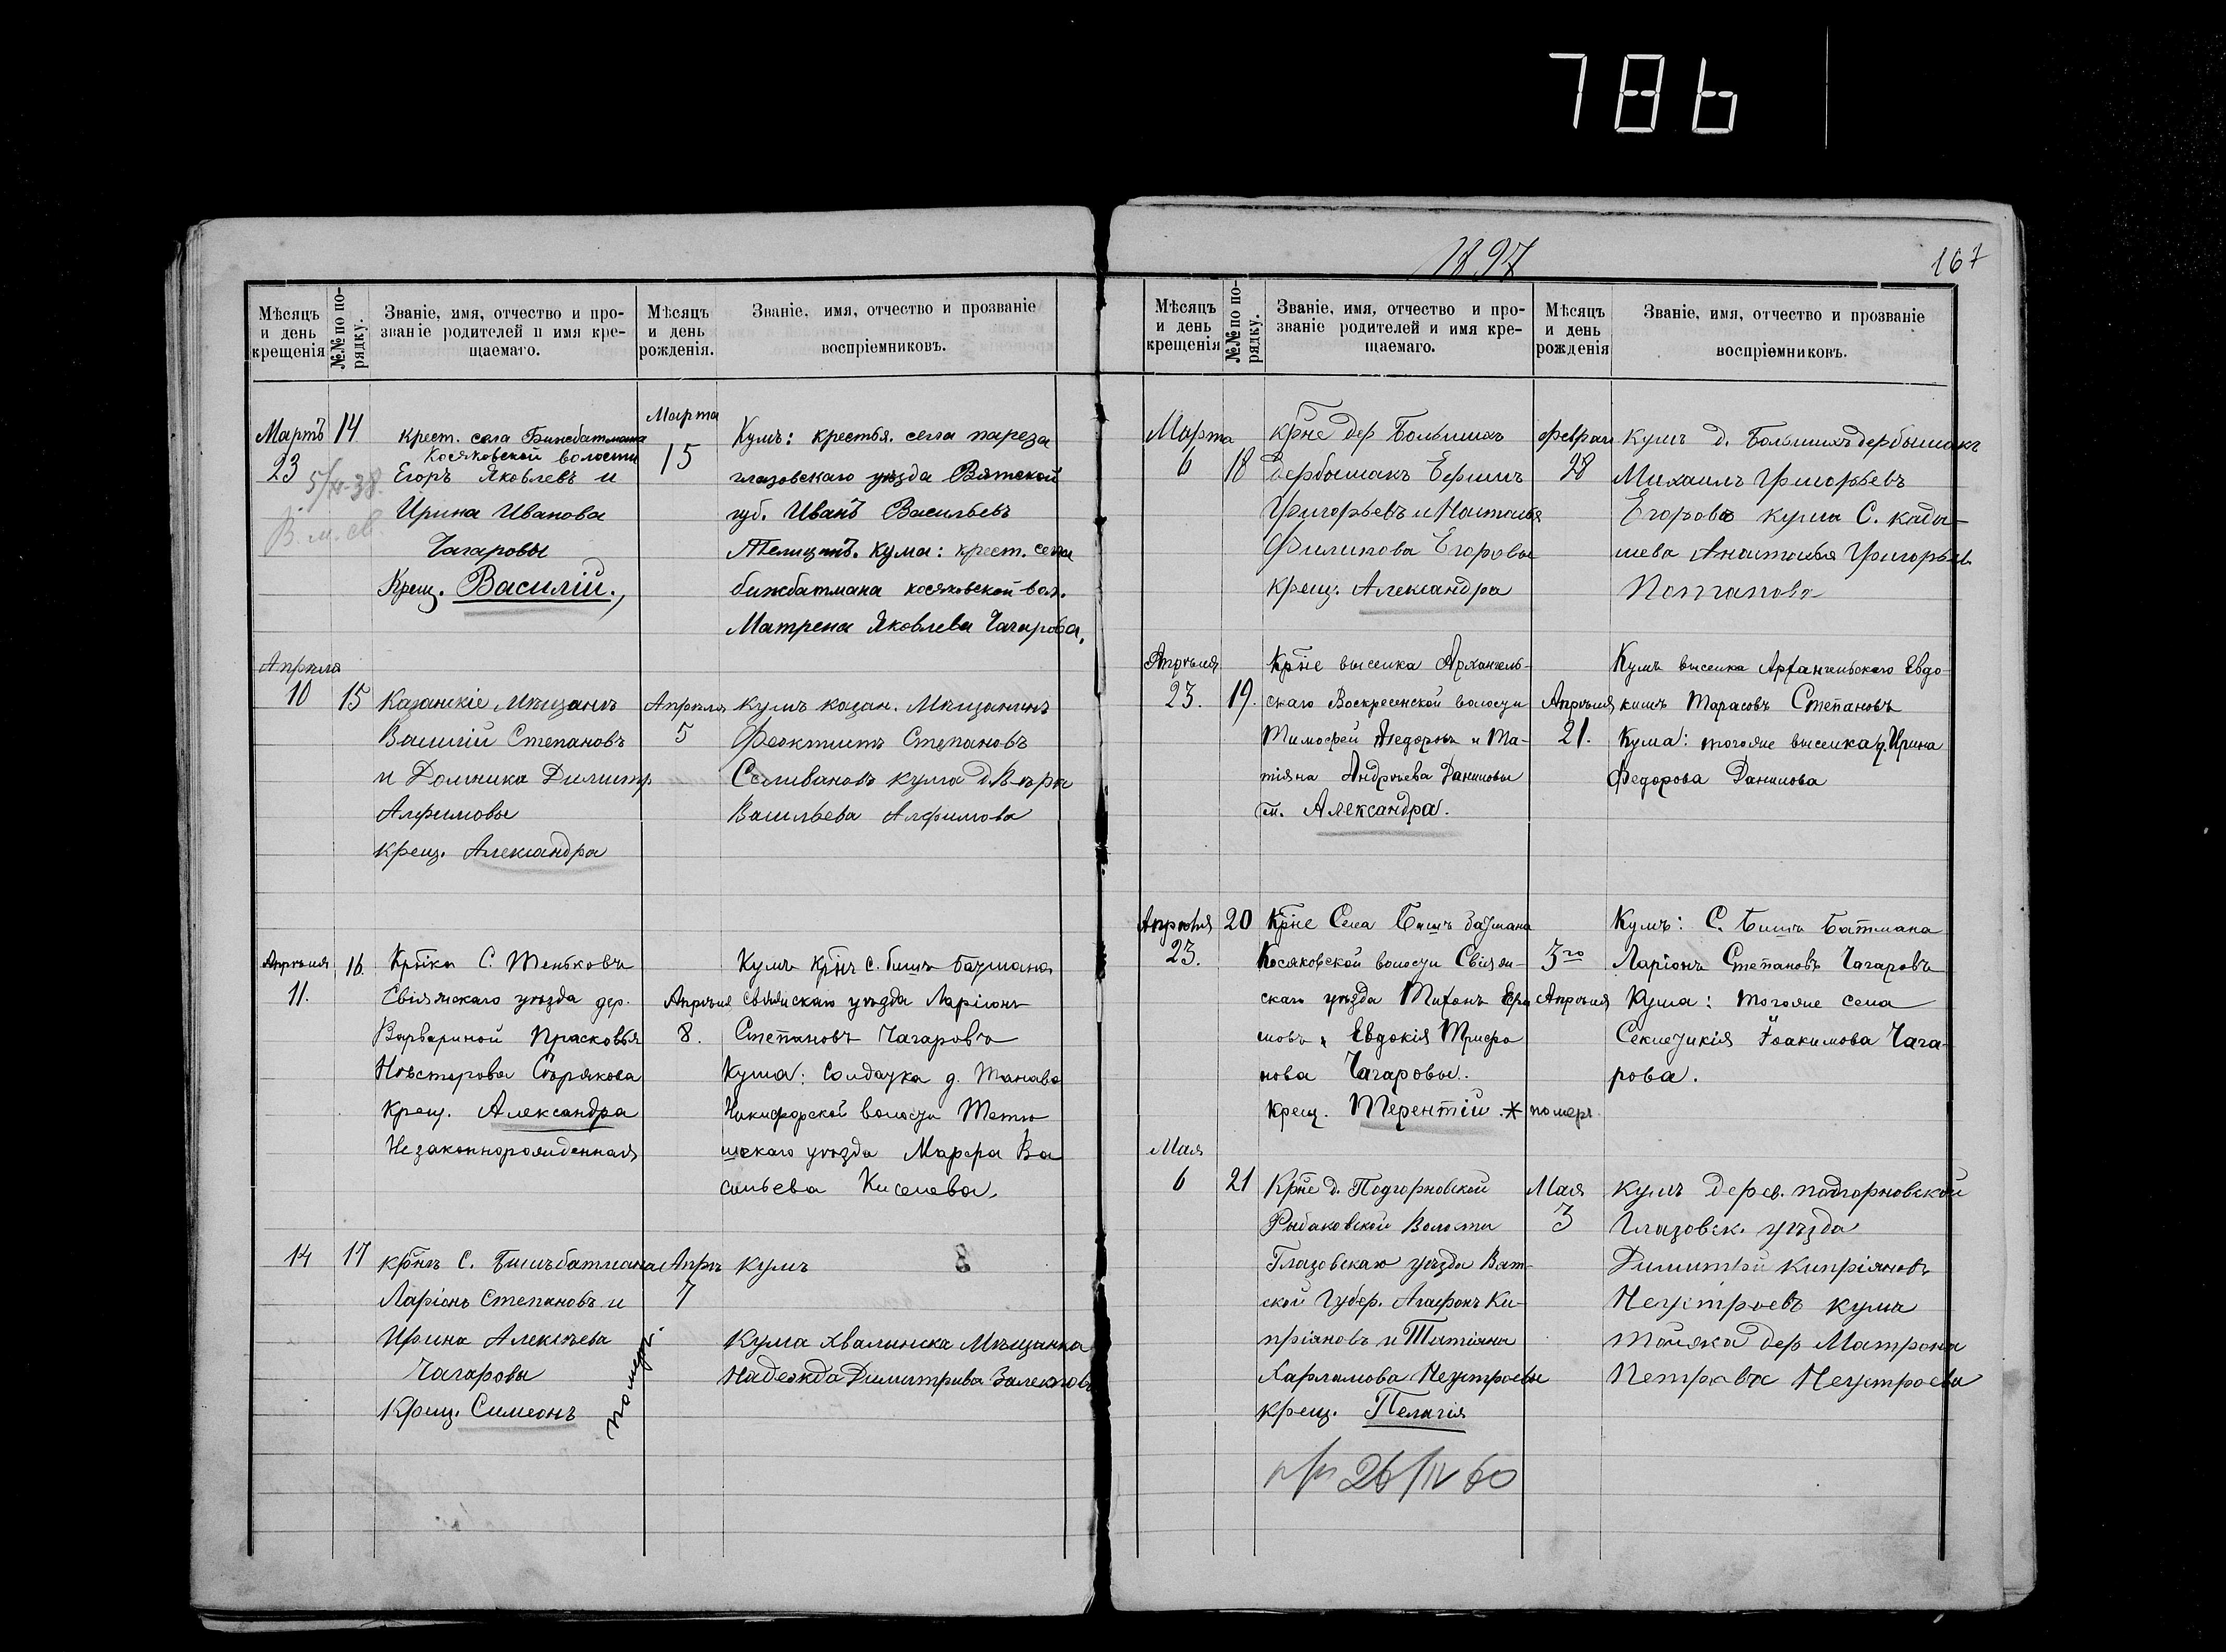 786
Мѣсяцъ и день крещенія
№№ по порядку.
Званіе, имя, отчество и про-
званіе родителей и имя кре-
щаемаго.
Мѣсяцъ и день рожденія.
Званіе, имя, отчество и прозваніе
воспріемниковъ.
Мартъ 14
23
5/4-38.
В. м. св.
крест. села Бишбатмана
Косяковской волости
Егоръ Яковлевъ и
Ирина Иванова
Чагаровы
Крещ. Василій.,
Марта
15
Кумъ: крестья. села пареза
глазовскаго уѣзда Вятской
губ. Иванъ Васильевъ
кума: крест. села
бишбатмана косяковской вол.
Матрена Яковлева Чагарова,
Апрѣля
10 15
Казанскіе Мѣщанъ
Василій Степановъ
и Домника Димитр
Алфимовы
крещ. Александра
Апрѣля
5
Кумъ казан. Мѣщанинъ
Феоктистъ Степановъ
Селивановъ кума д. Вѣра
Васильева Алфимова
Апрѣля 16.
11.
Кр̃нка С. Теньковъ
Свіяжскаго уѣзда дер.
Варвариной Прасковья
Нѣстерова
Крещ. Александра
Незаконнорожденная
Апрѣля
8.
Кумъ кр̃нъ с. бишъ батмана
свіяжскаго уѣзда Ларіонъ
Степановъ Чагаровъ
Кума: Солдатка д. Танаева
Никифорской волости Тетю
шскаго уѣзда Марфа Ва
сильева Киселева.
14 17
кр̃нъ С. Бишъбатмана
Ларіонъ Степановъ и
Ирина Алексѣева
Чагаровы
Крещ. Симеонъ
померъ.
Апрѣ
7
кумъ
Кума хвалынска Мѣщанка
Надежда Димитріева
1897
167
Мѣсяцъ и день крещенія
№№ по порядку.
Званіе, имя, отчество и про-
званіе родителей и имя кре-
щаемаго.
Мѣсяцъ и день рожденія
Званіе, имя, отчество и прозваніе
воспріемниковъ.
Марта
6 18
кр̃не дер Большихъ
Дербышакъ Ефимъ
Григорьевъ и Наталья
Филипова Егоровы
крещ. Александра
феврал
28
кумъ д. Большихъ дербышакъ
Михаилъ Григорьевъ
Егоровъ кума С. кады-
шева Анастасья Григорьев
Потапова
Апрѣля
23. 19.
Кр̃не выселка Архангель-
скаго Воскресенской волости
Тимофей Федоровъ и Та-
тіяна Андрѣева Даниловы
м. Александра.
Апрѣля
21.
Кумъ выселка Архангельскаго Евдо
кимъ Тарасовъ Степановъ
Кума: тогоже выселка д. Ирина
Федорова Данилова
Апрѣля 20
23.
Кр̃не Села Бишъ батмана
Косяковской волости Свіяж-
скаго уѣзда Тихонъ Ефи
мовъ, Евдокія Трифо
нова Чагаровы.
Крещ. Терентій. * померъ.
3го
Апрѣля
Кумъ: С. Бишъ Батмана
Ларіонъ Степановъ Чагаровъ
Кума: тогоже села
Секлетикія Іоакимова Чага-
рова.
Мая
6 21
Кр̃не д. Подгорновской
Рыбаковской Волости
Глазовскаго уѣзда Вят-
ской Губер. Агафонъ Ки-
пріяновъ и Татіяна
Харламова Неустроевы
крещ. Пелагія
Мая
3
кумъ дерев. подгорновской
Глазовск. уѣзда
Димитрій Кипріяновъ
Неустроевъ кума
тойжа дер Матрона
Петрова Неустроева
26/IV 60